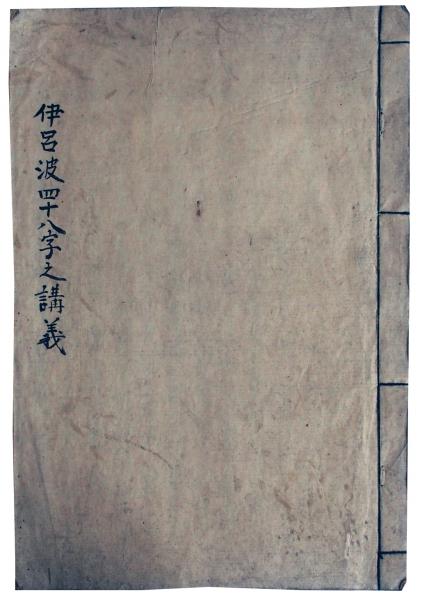 伊呂波四十八字之講義